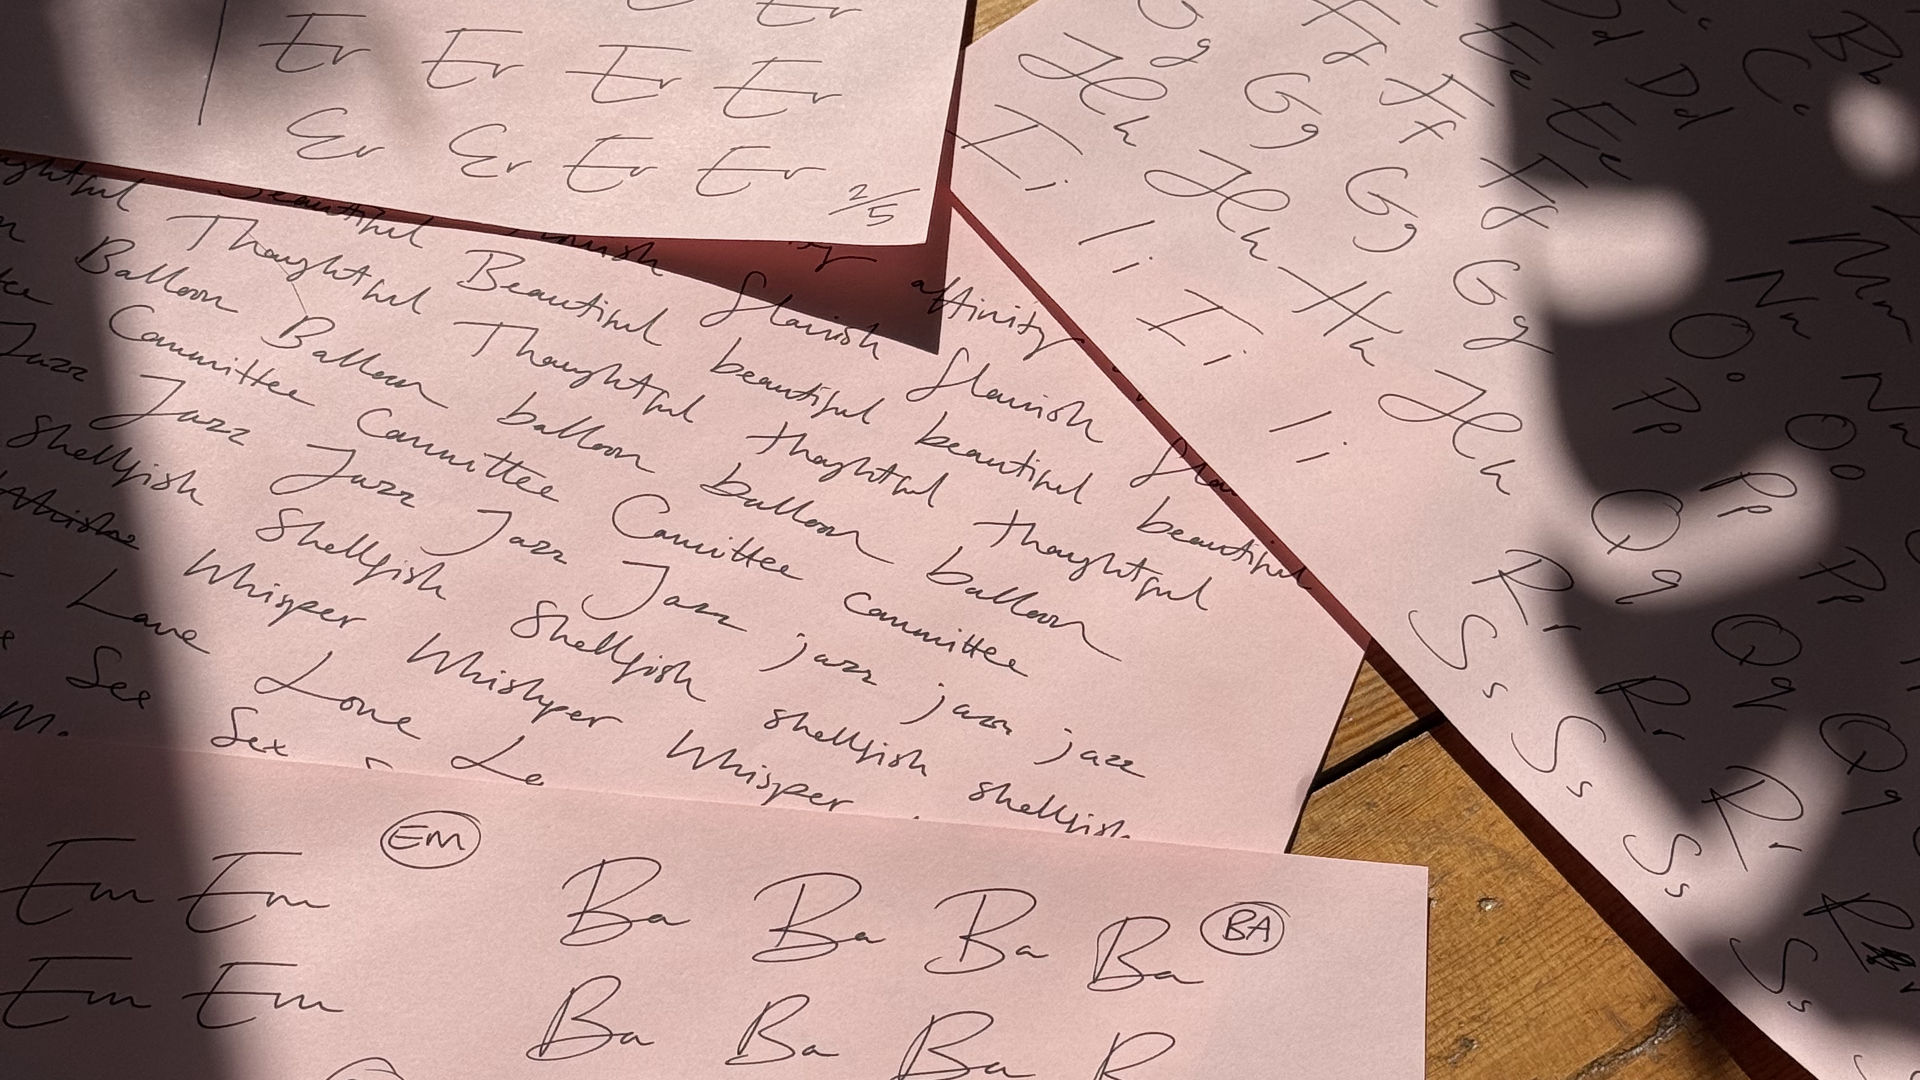 Er
Er Er Er Er
Er Er Er Er
2/5
affinity
Beautiful flourish flourish
Thoughtful Beautiful beautiful beautiful beautiful
Thoughtful Thoughtful thoughtful thoughtful
Balloon Balloon balloon balloon balloon
Committee Committee Committee committee
Jazz Jazz Jazz Jazz Jazz jazz jazz jazz
Shellfish Shellfish Shellfish shellfish shellfish
Whisper Whishper Whisper
Love Love
Sex Sex
EM
Em Em
Em Em
BA
Ba Ba Ba Ba
Ba Ba Ba
Bb
Cc
Dd Dd
Ee Ee
Ff Ff Ff
Gg Gg Gg Gg
Hh Hh Hh Hh
Ii Ii Ii Ii
Mm
Nn Nn
Oo Oo
Pp Pp Pp
Qq Qq Qq
Rr Rr Rr
Ss Ss Ss Ss